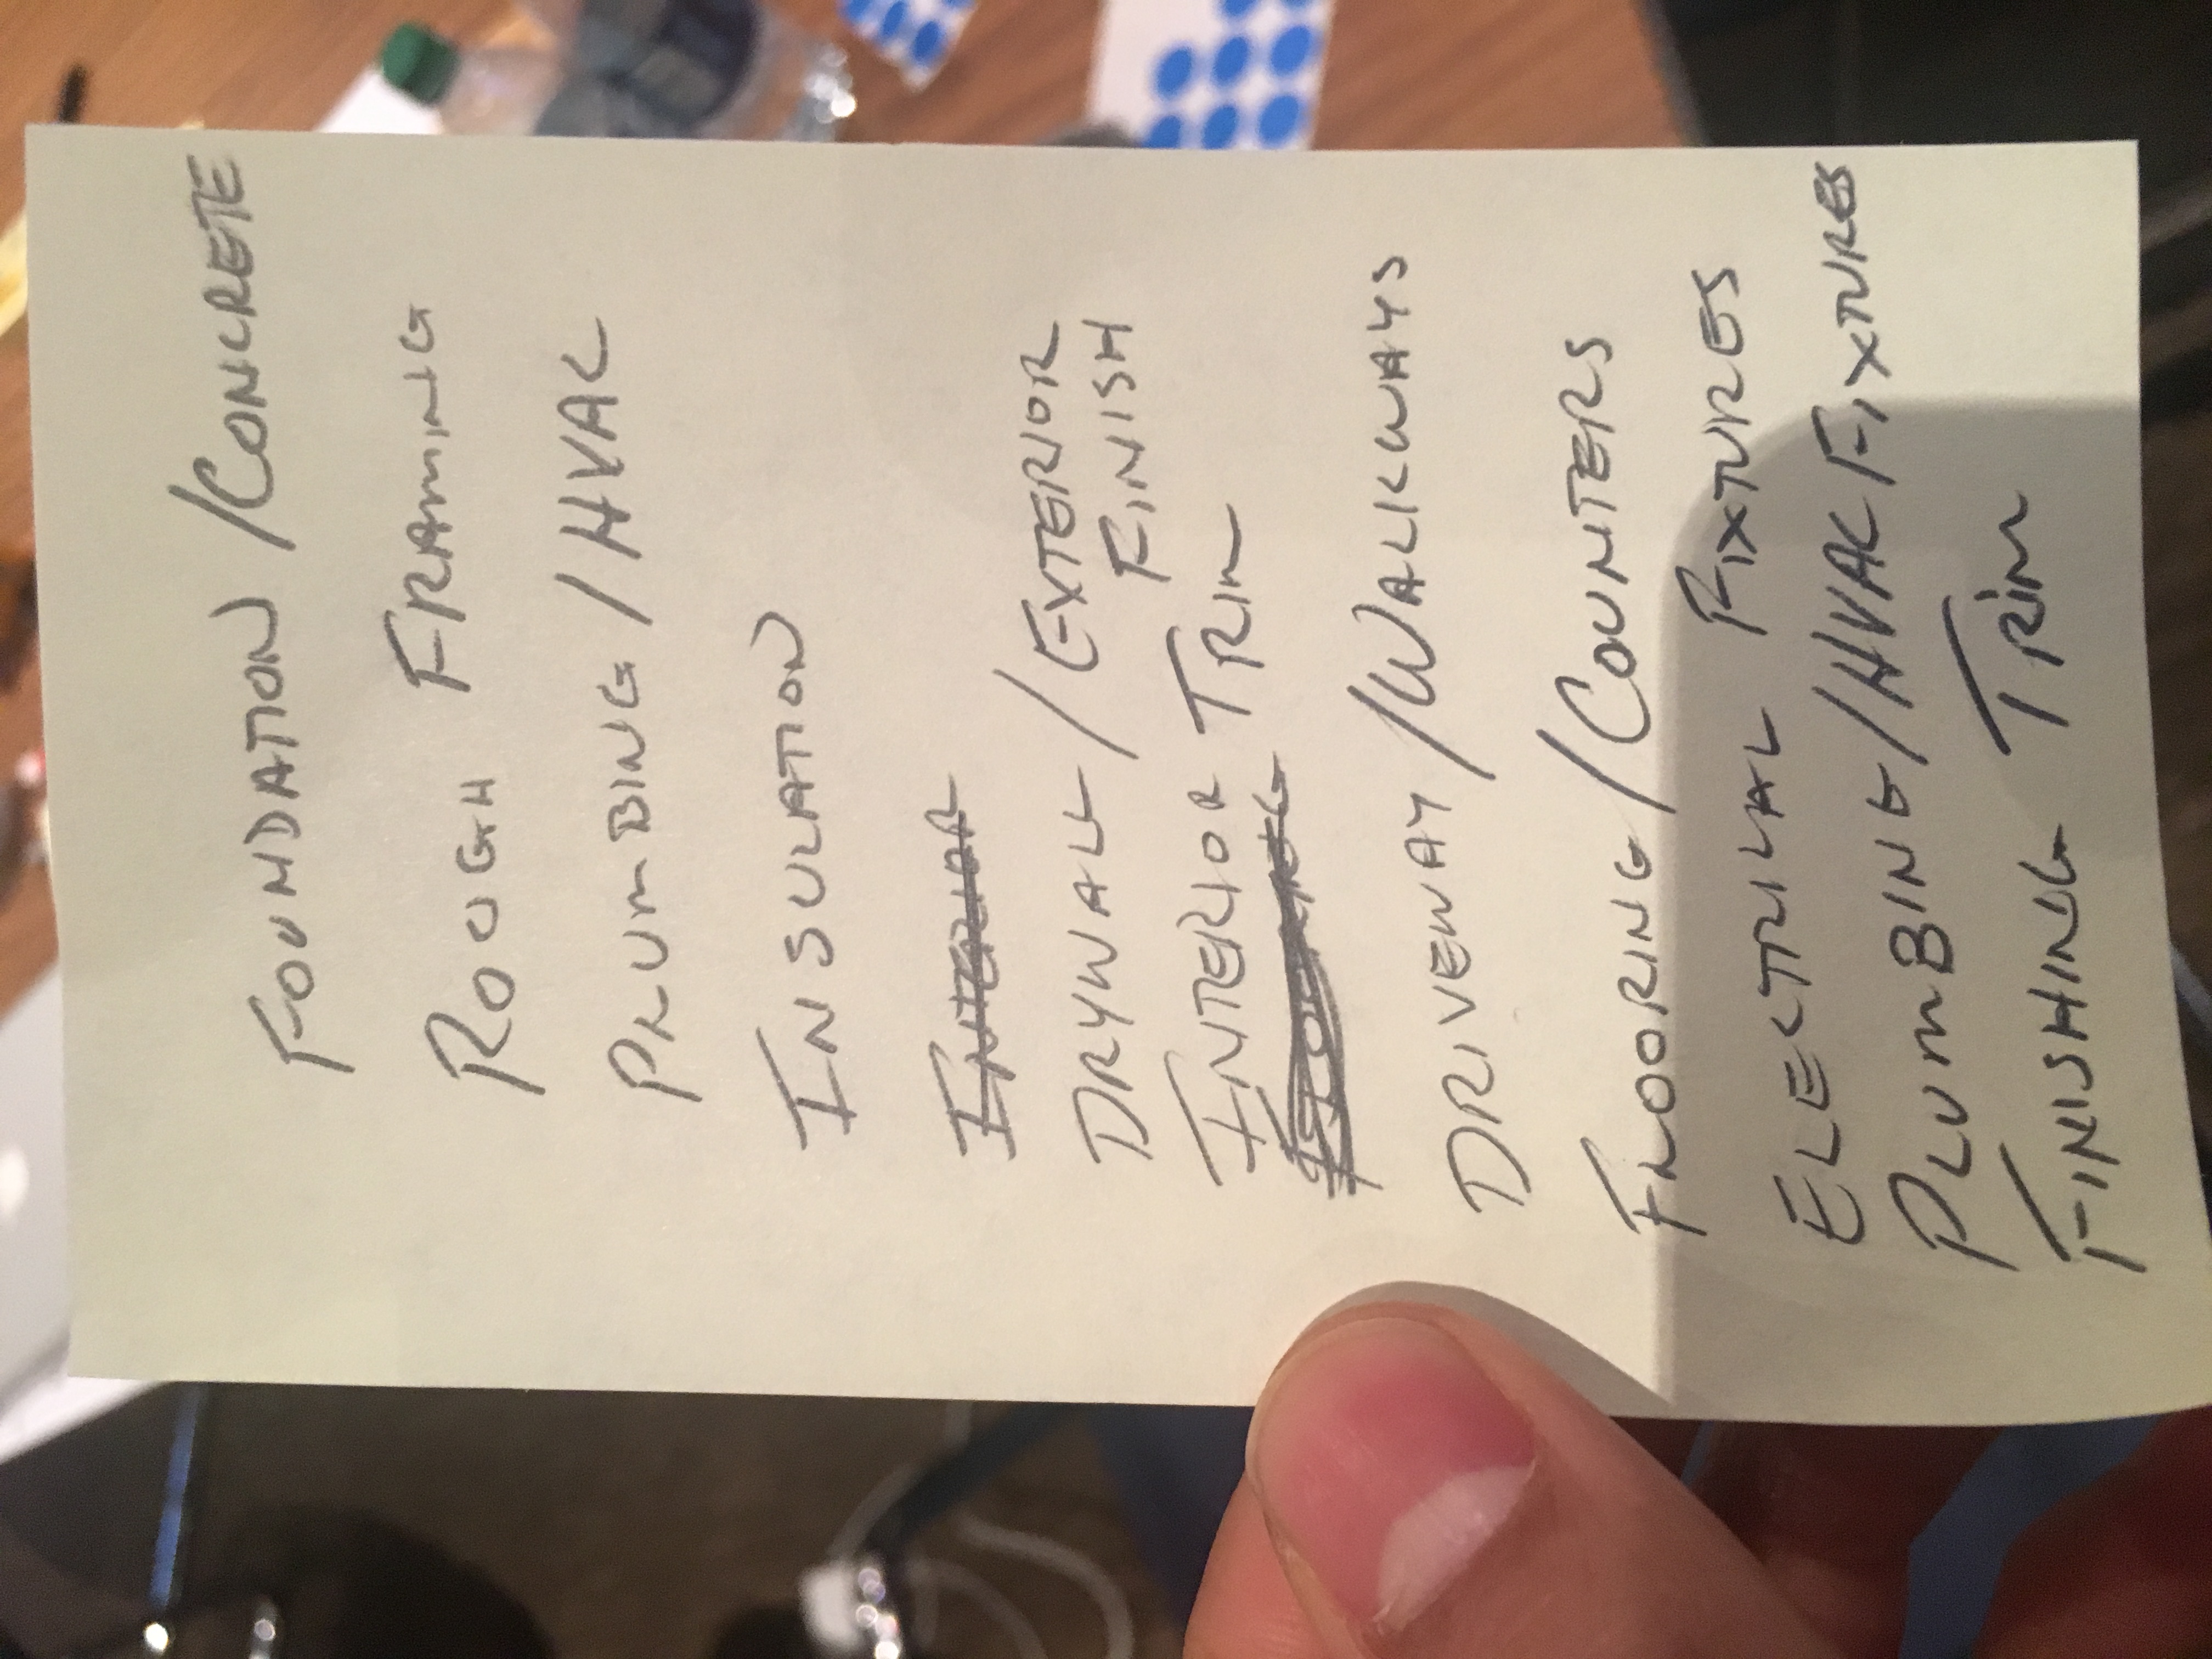 FOUNDATION / CONCRETE
ROUGH FRAMING
PLUMBING / HVAC
INSULATION
INTERIOR
DRYWALL / EXTERIOR
FINISH
INTERIOR TRIM
FLOORING
DRIVEWAY / WALKWAYS
FLOORING / COUNTERS
ELECTRICAL FIXTURES
PLUMBING / HVAC FIXTURES
FINISHING TRIM